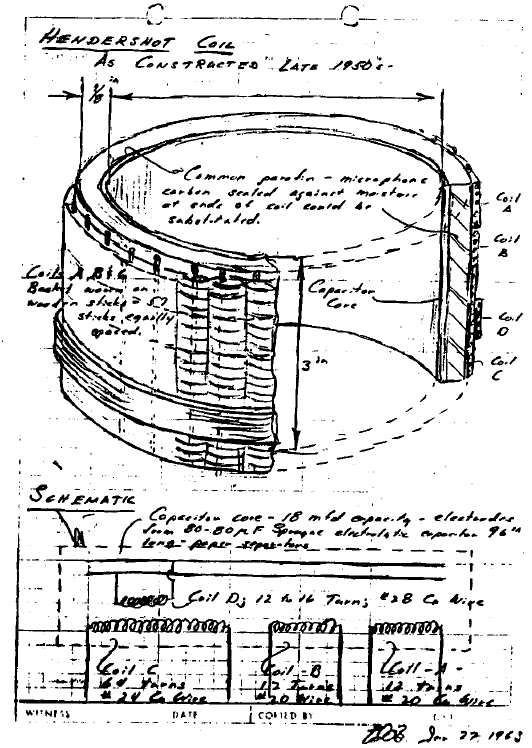 HENDERSHOT COIL
AS CONSTRUCTED LATE 1950's -
Common parafin - microphone
carbon sealed against moisture
at ends of coil could be
substituted.
Coil
A
Coil
B
Coils A, B & C
Basket wound on
wooden sticks - 57
sticks equally
spaced.
Capacitor
Core
3 in
Coil
D
Coil
C
SCHEMATIC
Capacitor core - 18 mfd capacity - electrodes
from 80-80 µF Sprague electrolytic capacitor 96"
long - paper separators
Coil D; 12 to 16 Turns; #28 Cu Wire
Coil C
64 turns
# 24 Cu Wire
Coil - B
12 turns
#20 Wire
Coil - A -
12 turns
# 20 Cu Wire
WITNESS
DATE
COPIED BY
Jan 27 1963